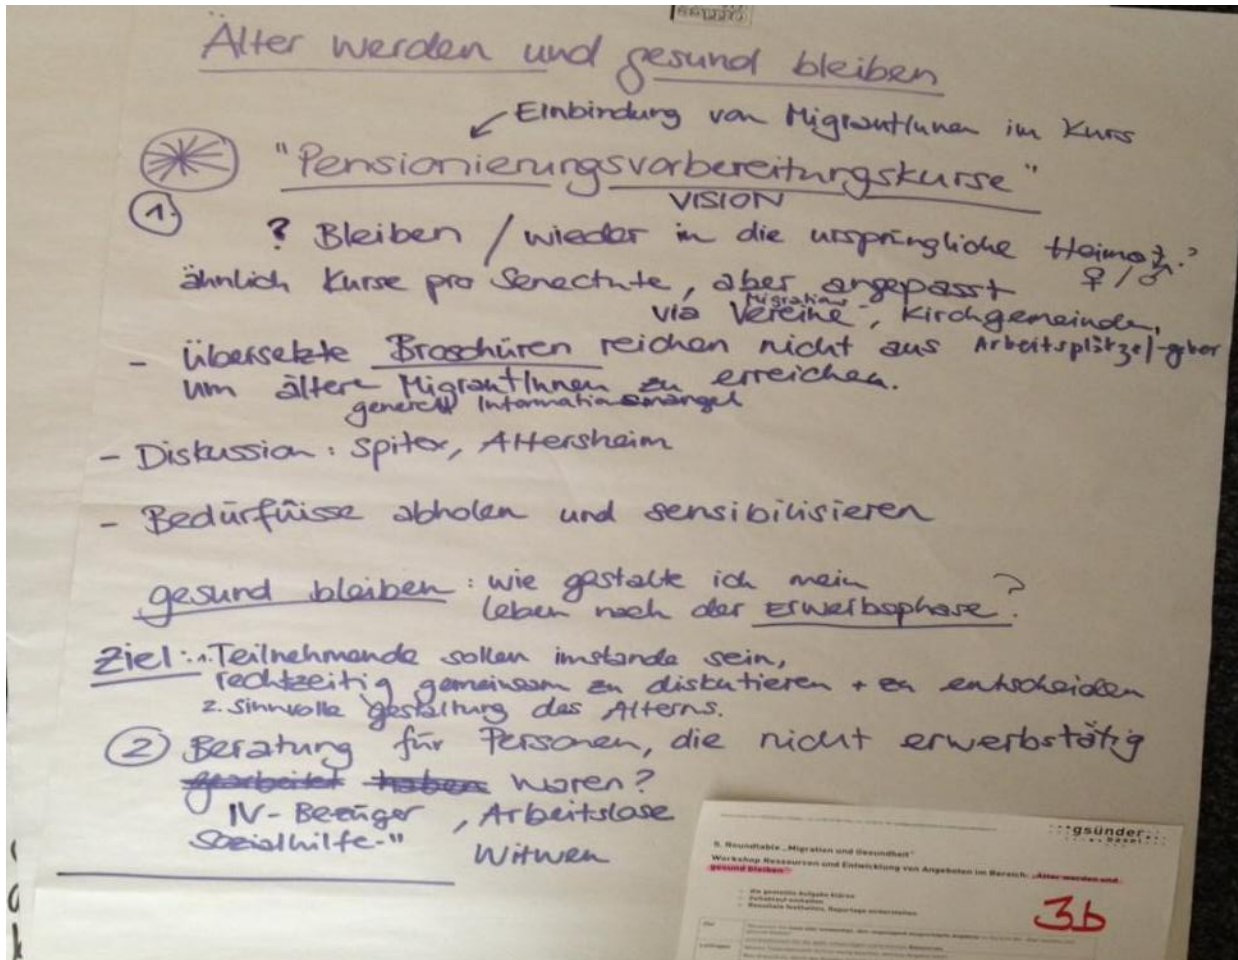 Älter werden und gesund bleiben
Einbindung von MigrantInnen im Kurs
"Pensionierungsvorbereitungskurse"
VISION
1.
? Bleiben / wieder in die ursprüngliche Heimat?
♀ / ♂
ähnlich Kurse pro Senectute, aber angepasst
Migrations-
via Vereine, Kirchgemeinden,
Arbeitsplätze/-geber
- Übersetzte Broschüren reichen nicht aus
um ältere MigrantInnen zu erreichen.
generell Informationsmangel
- Diskussion: Spitex, Altersheim
- Bedürfnisse abholen und sensibilisieren
gesund bleiben: wie gestalte ich mein
Leben nach der Erwerbsphase?
Ziel: 1. Teilnehmende sollen imstande sein,
rechtzeitig gemeinsam zu diskutieren + zu entscheiden
2. Sinnvolle Gestaltung des Alterns.
2 Beratung für Personen, die nicht erwerbstätig
gearbeitet haben waren?
IV-Bezüger, Arbeitslose
Sozialhilfe-" Witwen
gsünder
basel
9. Roundtable „Migration und Gesundheit"
Workshop Ressourcen und Entwicklung von Angeboten im Bereich: „Älter werden und
gesund bleiben"
- die gestellte Aufgabe klären
- Zeitablauf einhalten
- Resultate festhalten, Reportage sicherstellen
3b
Ziel
Leitfragen